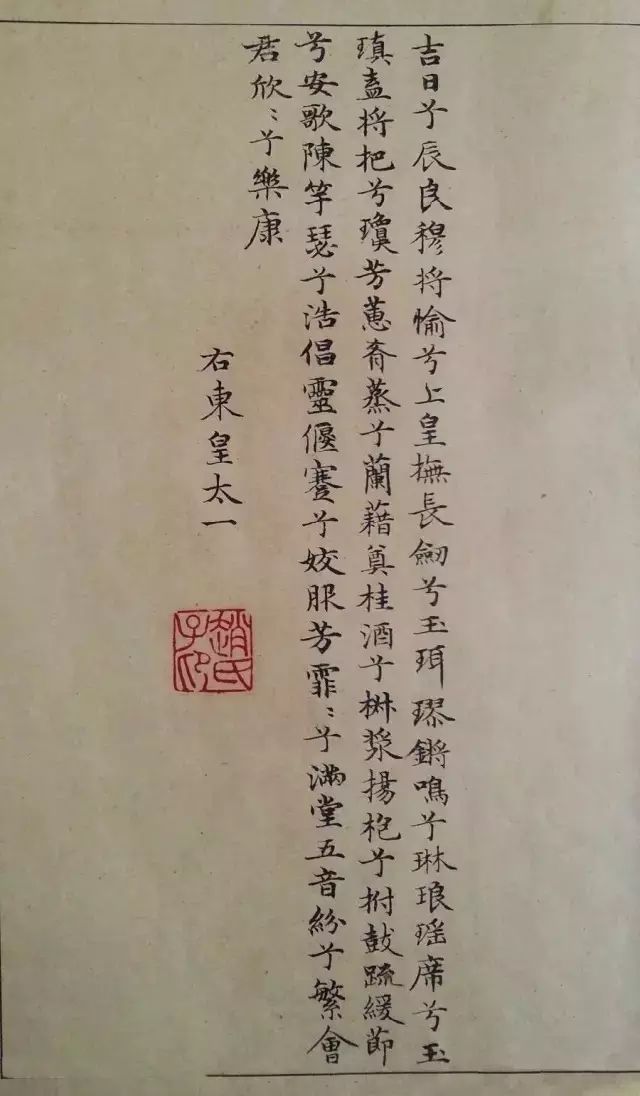 吉日兮辰良穆将愉兮上皇撫長劒兮玉珥璆鏘鳴兮琳琅瑶席兮玉
瑱盍将把兮瓊芳蕙肴蒸兮蘭藉奠桂酒兮椒漿揚枹兮拊鼓踈緩節
兮安歌陳竽瑟兮浩倡靈偃蹇兮姣服芳霏〻兮滿堂五音紛兮繁會
君欣〻兮樂康
右東皇太一
趙氏
子印